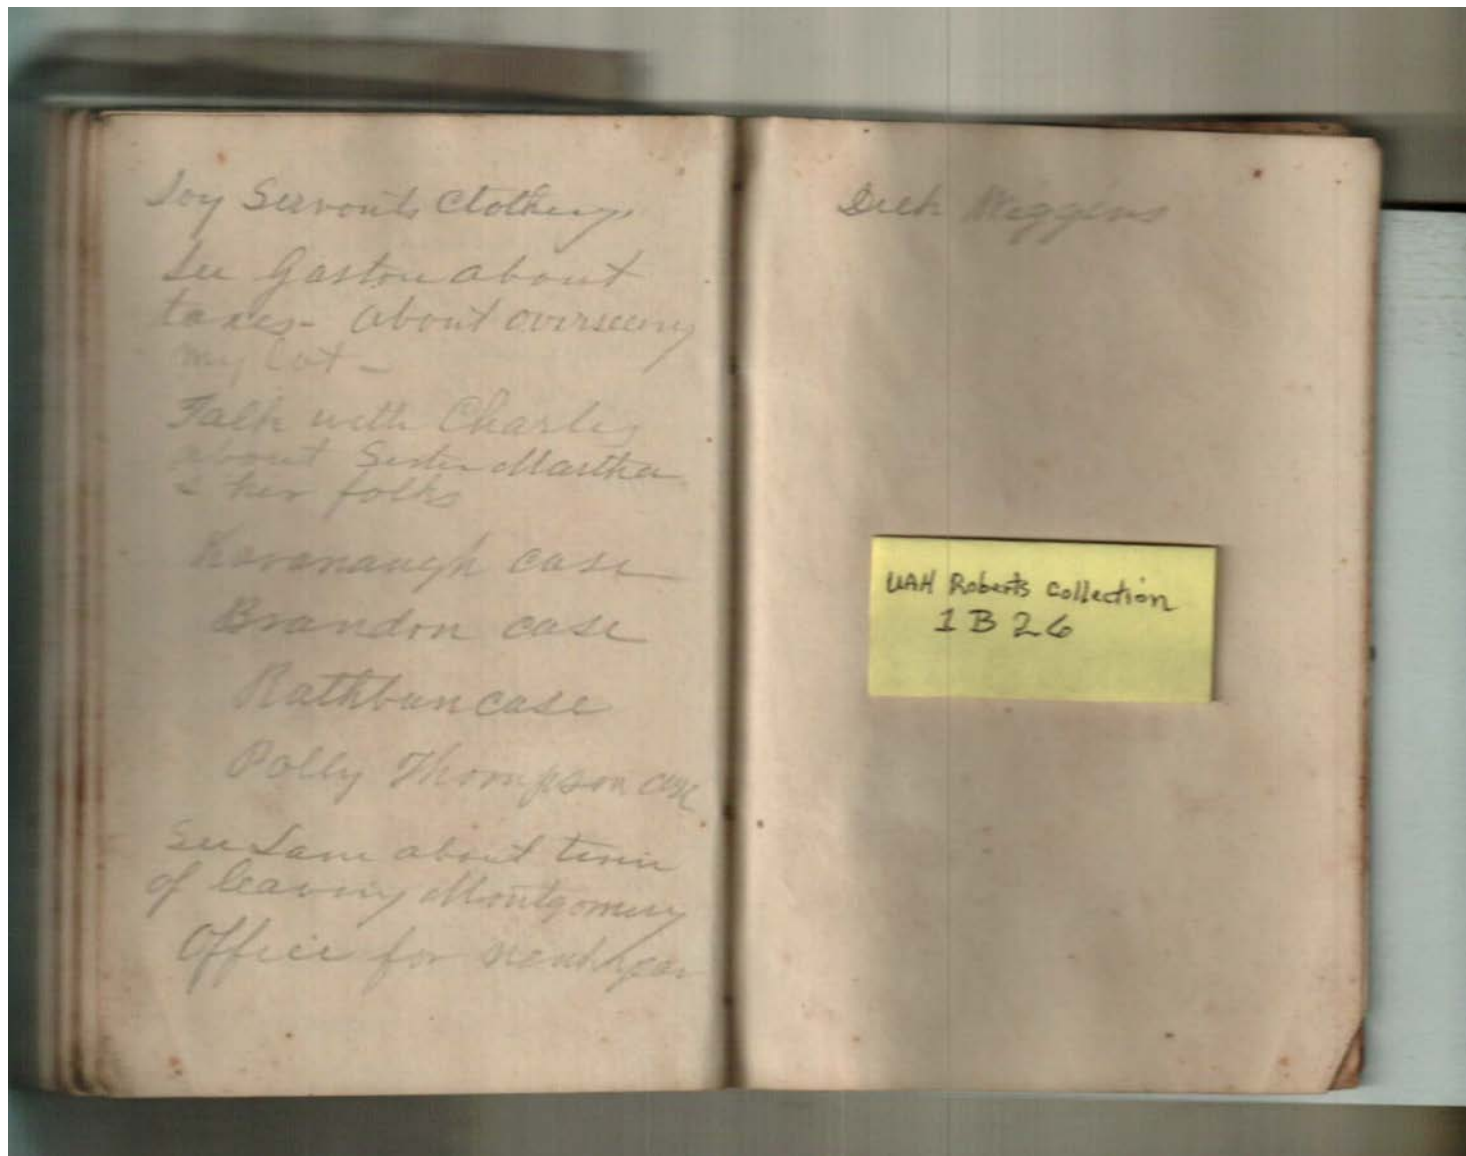 Servants Clothing
See Gaston about
taxes - about overseeing
my lot -
Talk with Charley
about Sister Martha
& her folks
Kavanaugh case
Brandon case
Rathbun case
Polly Thompson case
See Sam about time
of leaving Montgomery
Office for next year
Dick Wiggins
UAH Roberts Collection
1B26